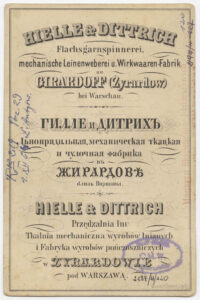 HIELLE & DITTRICH
Flachsgarnspinnerei,
mechanische Leinenweberei u. Wirkwaaren-Fabrik
GIRARDOFF (Zyrardow)
bei Warschau.
ГИЛЛЕ и ДИТРИХЪ
Льнопрядильная, механическая ткацкая
и чулочная фабрика
въ
ЖИРАРДОВѢ
близь Варшавы.
HIELLE & DITTRICH
Przędzalnia lnu
Tkalnia mechaniczna wyrobów lnianych
i Fabryka wyrobów pończoszniczych
w ZYRARDOWIE
pod WARSZAWĄ.